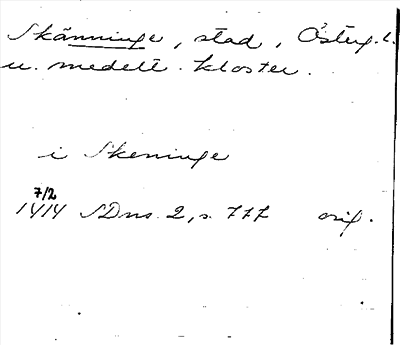 Skänninge, stad, Österg. l.
u. medelt. kloster.
i Skeninge
7/2
1414 SDns 2, s. 777 orig.